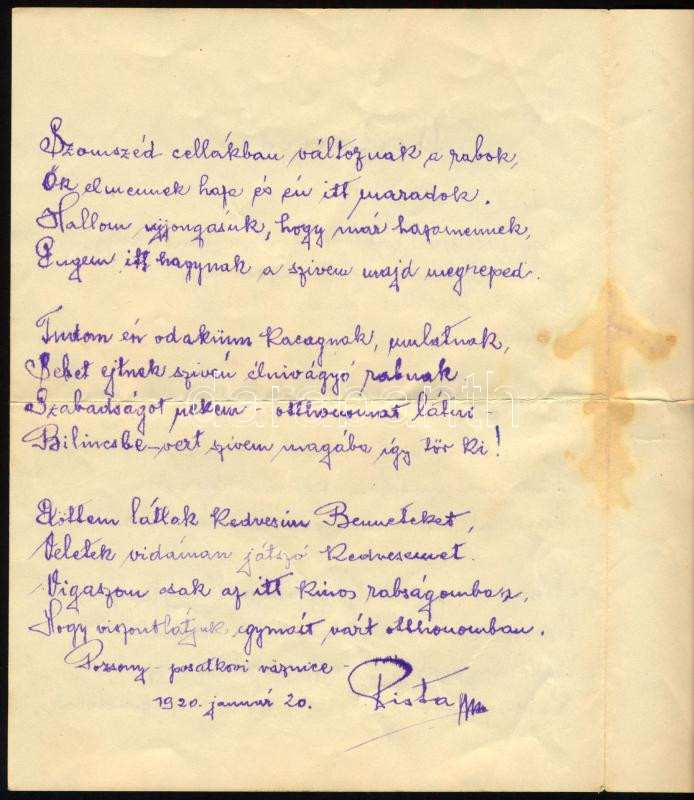 Szomszéd cellákban változnak a rabok,
Ők elmennek haza és én itt maradok.
Hallom ujjongásuk, hogy már hazamennek,
Engem itt hagynak a szivem majd megreped.
Tudom én odakünn kacagnak, mulatnak,
Sebet ejtnek szivén élnivágyó rabnak
Szabadságot nekem - otthonomat látni -
Bilincsbe-vert szivem magába így tör ki!
Előttem látlak kedvesim Benneteket,
Veletek vidáman játszó kedvesemet.
Vigaszom csak az itt kinos rabságomban,
Hogy viszontlátjuk egymást várt otthonomban.
Pozsony - 
1920. január 20.
Pista
darabanth